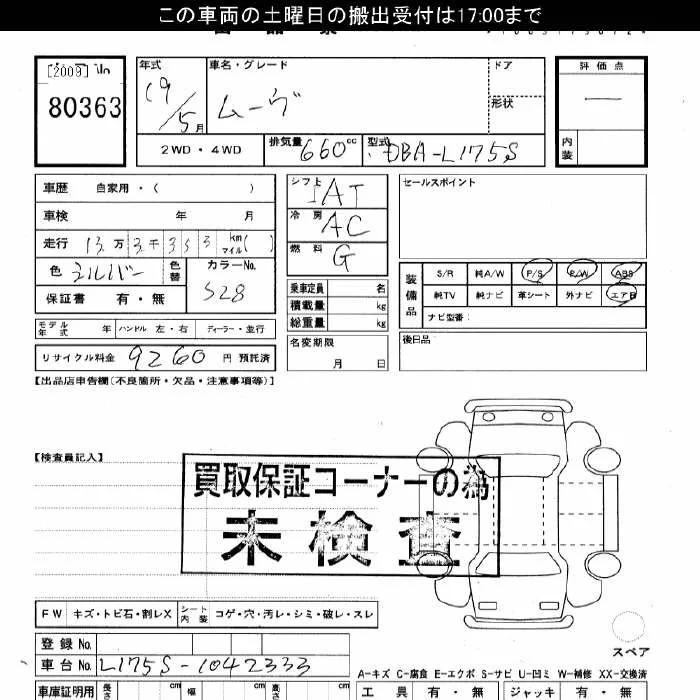 この車両の土曜日の搬出受付は17:00まで
[2009]
80363
年式 19/5月
車名・グレード ムーヴ
ドア
形状
評価点
内装
2WD・4WD
排気量 660cc
型式 DBA-L175S
車歴 自家用・( )
車検 年 月
走行 13万3千353km マイル( )
色 シルバー 色替
カラーNo. S28
保証書 有・無
モデル年式 年 ハンドル 左・右 ディーラー・並行
リサイクル料金 9260円 預託済
シフト IAT
冷房 AC
燃料 G
乗車定員 名
積載量 kg
総重量 kg
名変期限 月 日
セールスポイント
装備品
S/R 純A/W P/S P/W ABS
純TV 純ナビ 革シート 外ナビ エアB
ナビ型番:
後日品
【出品店申告欄(不良箇所・欠品・注意事項等)】
【検査員記入】
買取保証コーナーの為
未検査
FW キズ・トビ石・割レX シート内装 コゲ・穴・汚レ・シミ・破レ・スレ
登録No.
車台No. L175S-1042333
スペア
A-キズ C-腐食 E-エクボ S-サビ U-凹ミ W-補修 XX-交換済
車庫証明用 長さ cm 幅 cm 高さ cm
工具 有・無 ジャッキ 有・無